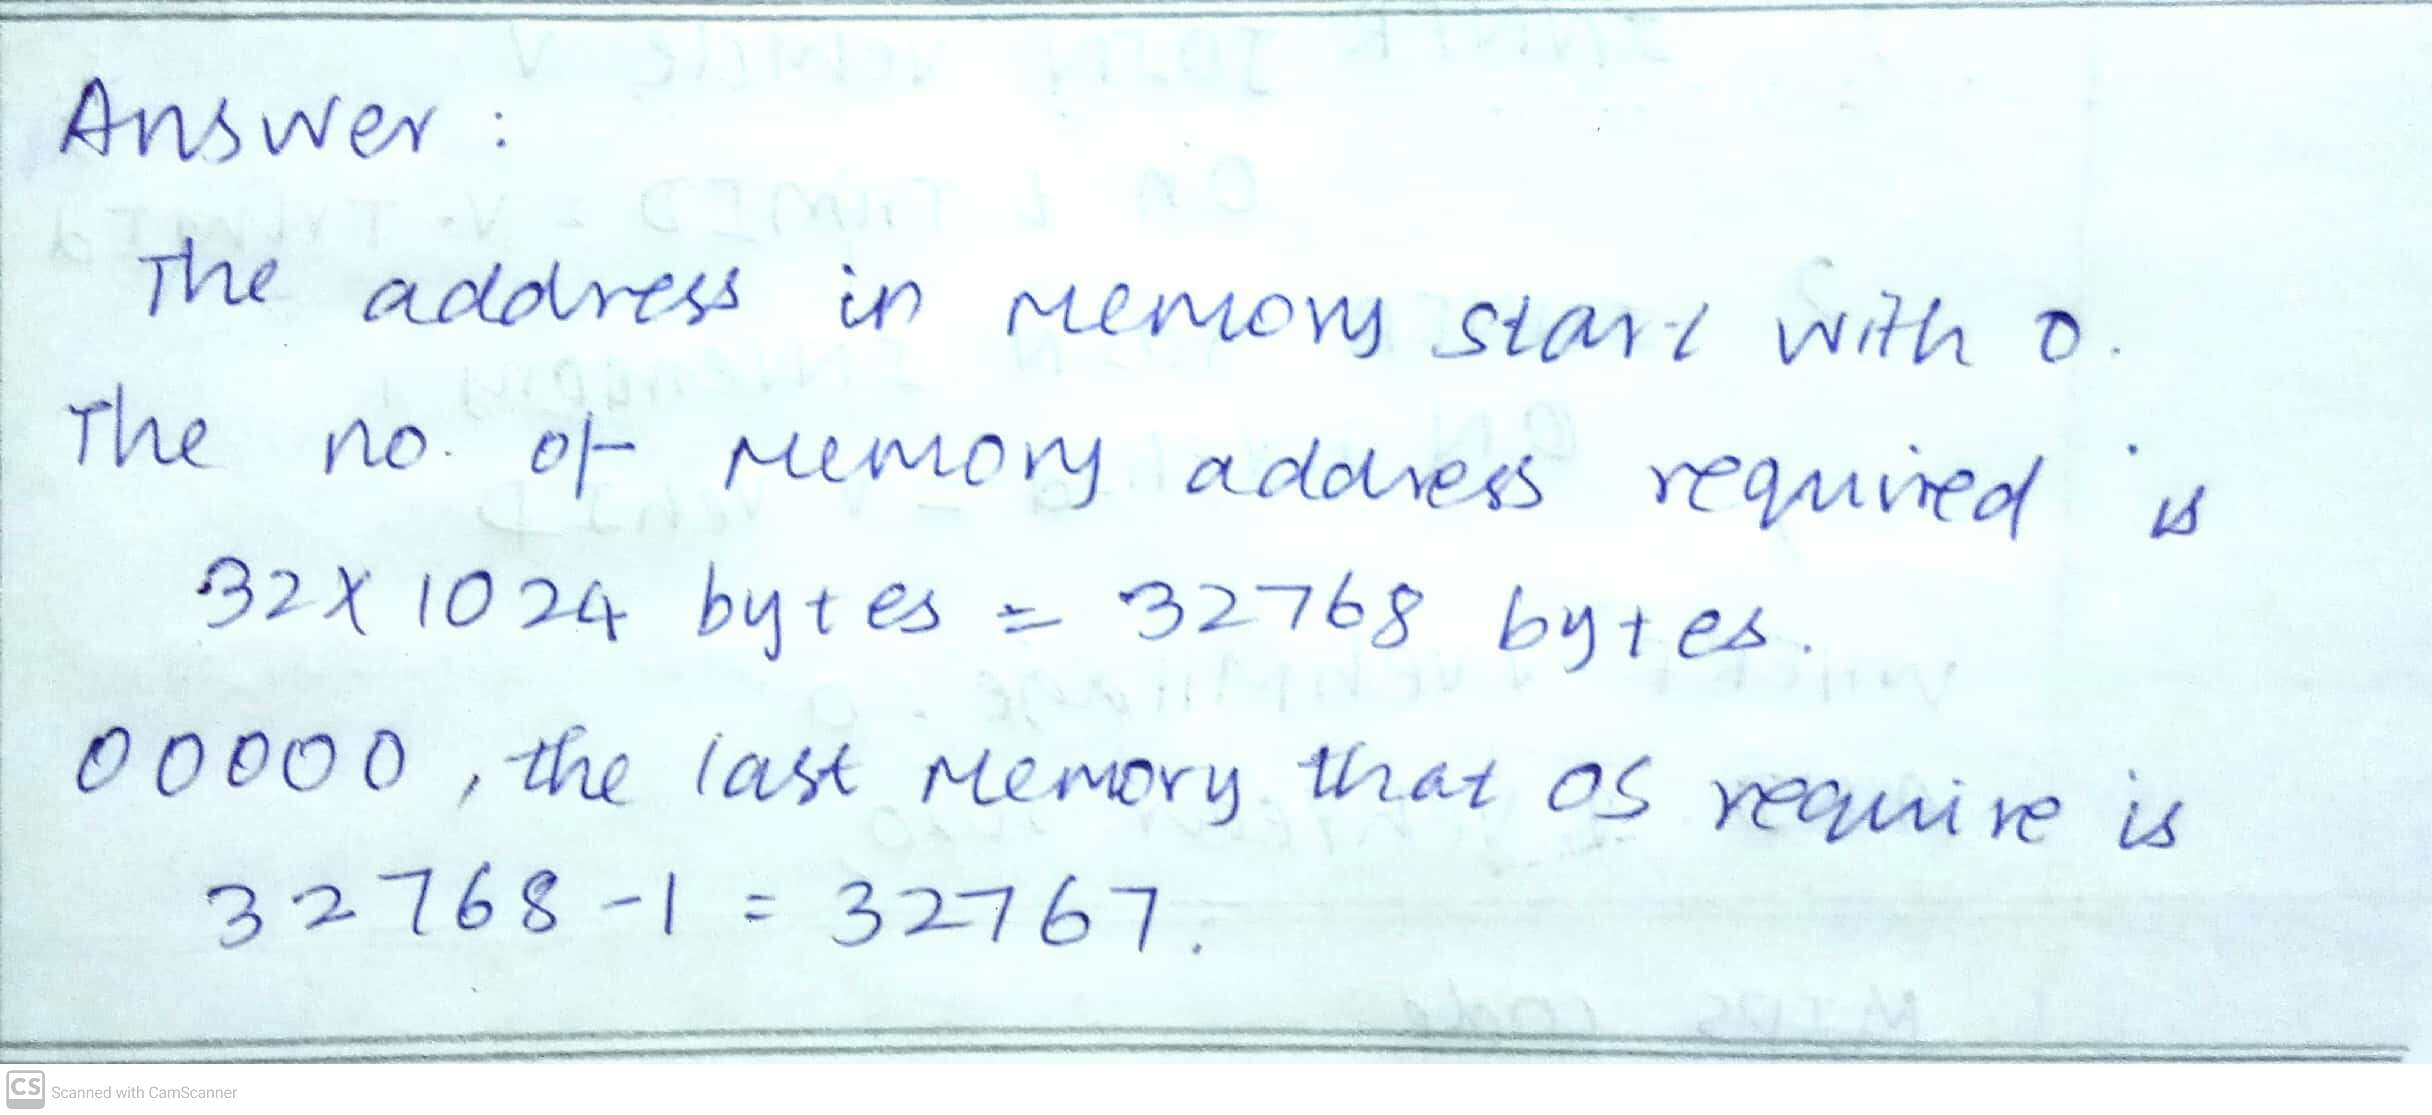 Answer :
The address in memory start with 0.
The no. of memory address required is
32 X 1024 bytes = 32768 bytes.
00000 , the last memory that OS require is
32768 - 1 = 32767.
CS Scanned with CamScanner